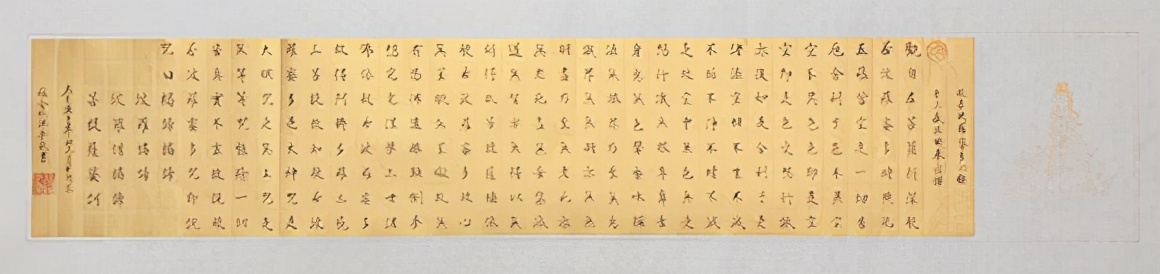 般若波羅蜜多心經
觀自在菩薩行深般
若波羅蜜多時照見
五蘊皆空度一切苦
厄舍利子色不異空
空不異色色即是空
空即是色受想行識
亦復如是舍利子是
諸法空相不生不滅
不垢不淨不增不減
是故空中無色無受
想行識無眼耳鼻舌
身意無色聲香味觸
法無眼界乃至無意
識界無無明亦無無
明盡乃至無老死亦
無老死盡無苦集滅
道無智亦無得以無
所得故菩提薩埵依
般若波羅蜜多故心
無罣礙無罣礙故無
有恐怖遠離顛倒夢
想究竟涅槃三世諸
佛依般若波羅蜜多
故得阿耨多羅三藐
三菩提故知般若波
羅蜜多是大神咒是
大明咒是無上咒是
無等等咒能除一切
苦真實不虛故說般
若波羅蜜多咒即說
咒曰揭諦揭諦
波羅揭諦
波羅僧揭諦
菩提薩婆訶